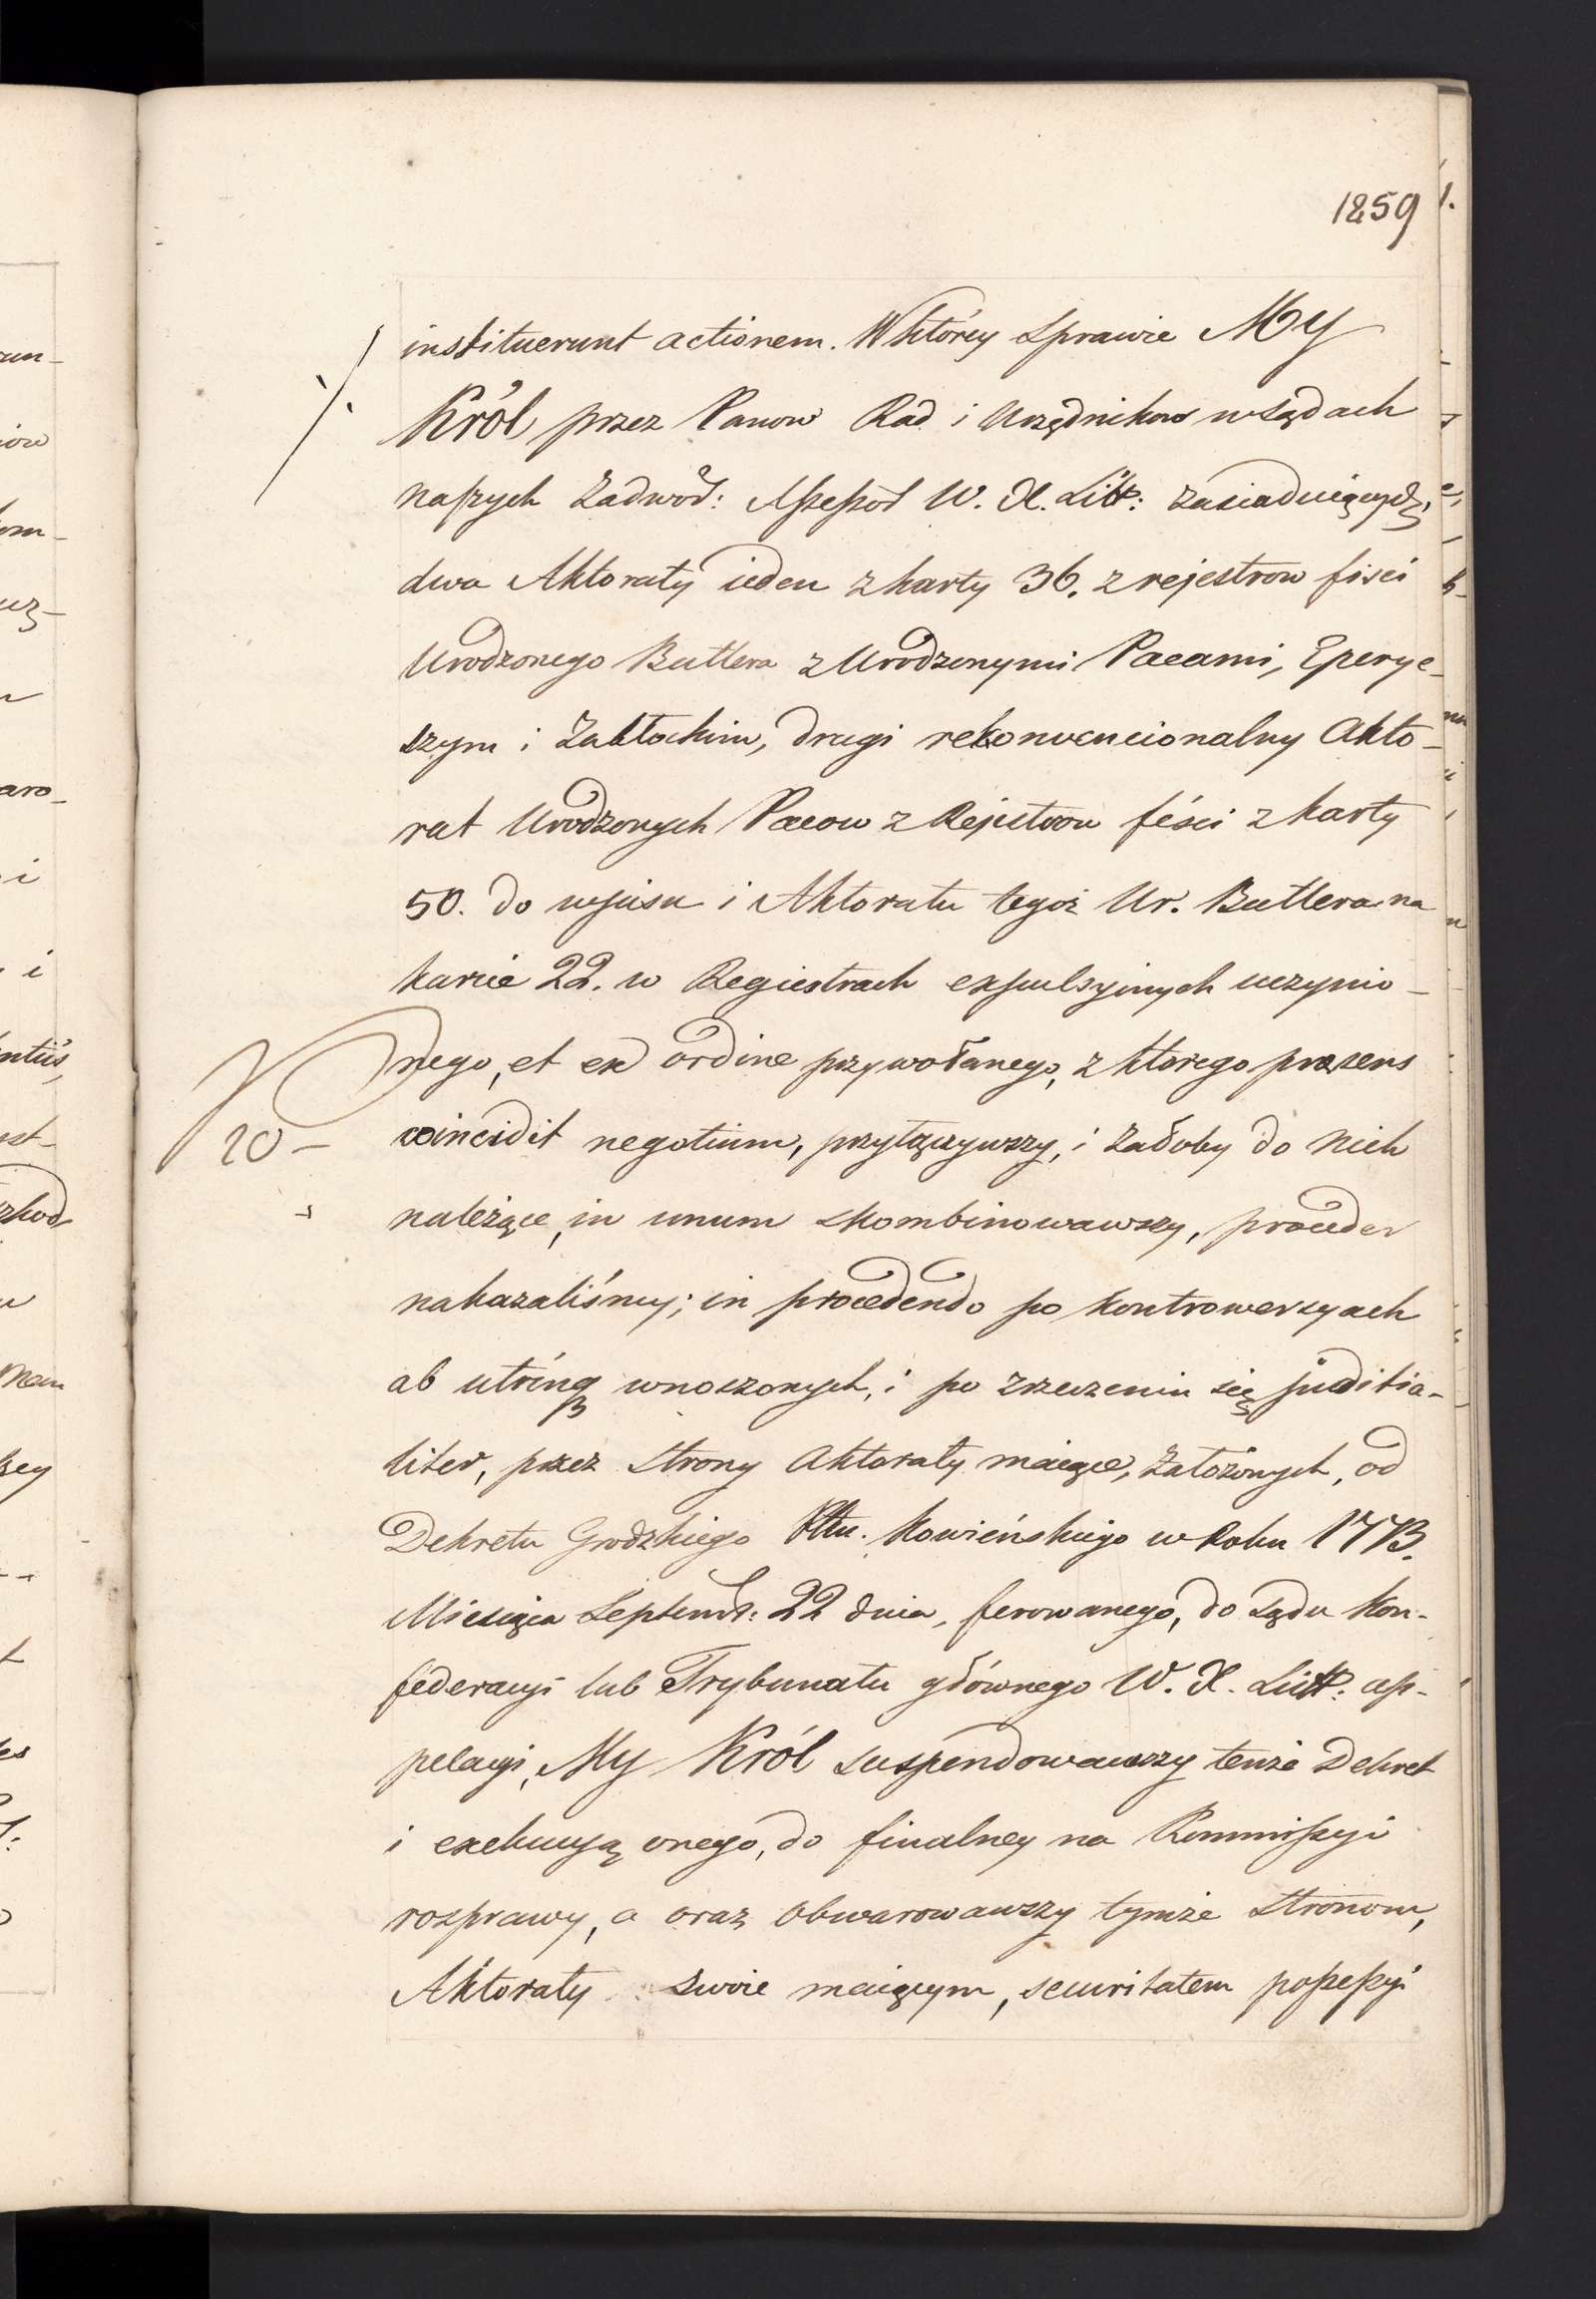 1859
instituerunt actionem. W ktorey Sprawie My
Król przez Panow Rad i Urzędnikow w sądach
naszych Zadwor: Assessor W. X. Litt: Zasiadaiących,
dwa Aktoraty ieden z karty 36. z rejestrow fisci
Urodzonego Butlera z Urodzonymi Pacami, Eperye-
szym i Zabłockim, drugi rekonwencionalny Akto-
rat Urodzonych Pacow z Rejestrow fisci z karty
50. do wpisu i Aktoratu tegoż Ur. Butlera na
karcie 22. w Regiestrach expulsyinych uczynio-
nego, et ex ordine przywołanego, z ktorego præsens
coincidit negotium, przyłączywszy, i żałoby do nich
20 -
należące, in unum skombinowawszy, proceder
nakazaliśmy; in procedendo po kontrowersyach
ab utrinq wnoszonych, i po zrzeczeniu się juditia-
liter, przez Strony Aktoraty maiące, założonych, od
Dekretu Grodzkiego Pttu. Kowieńskiego w Roku 1773.
Miesiąca Septembr: 22 dnia, ferowanego, do sądu Kon-
federacyi lub Trybunatu głównego W. X. Litt: ap-
pelacyi, My Król suspendowawszy tenże Dekret
i exekucyą onego, do finalney na Kommissyi
rozprawy, a oraz obwarowawszy tymże Stronom,
Aktoraty swoie maiącym, securitatem possessyi